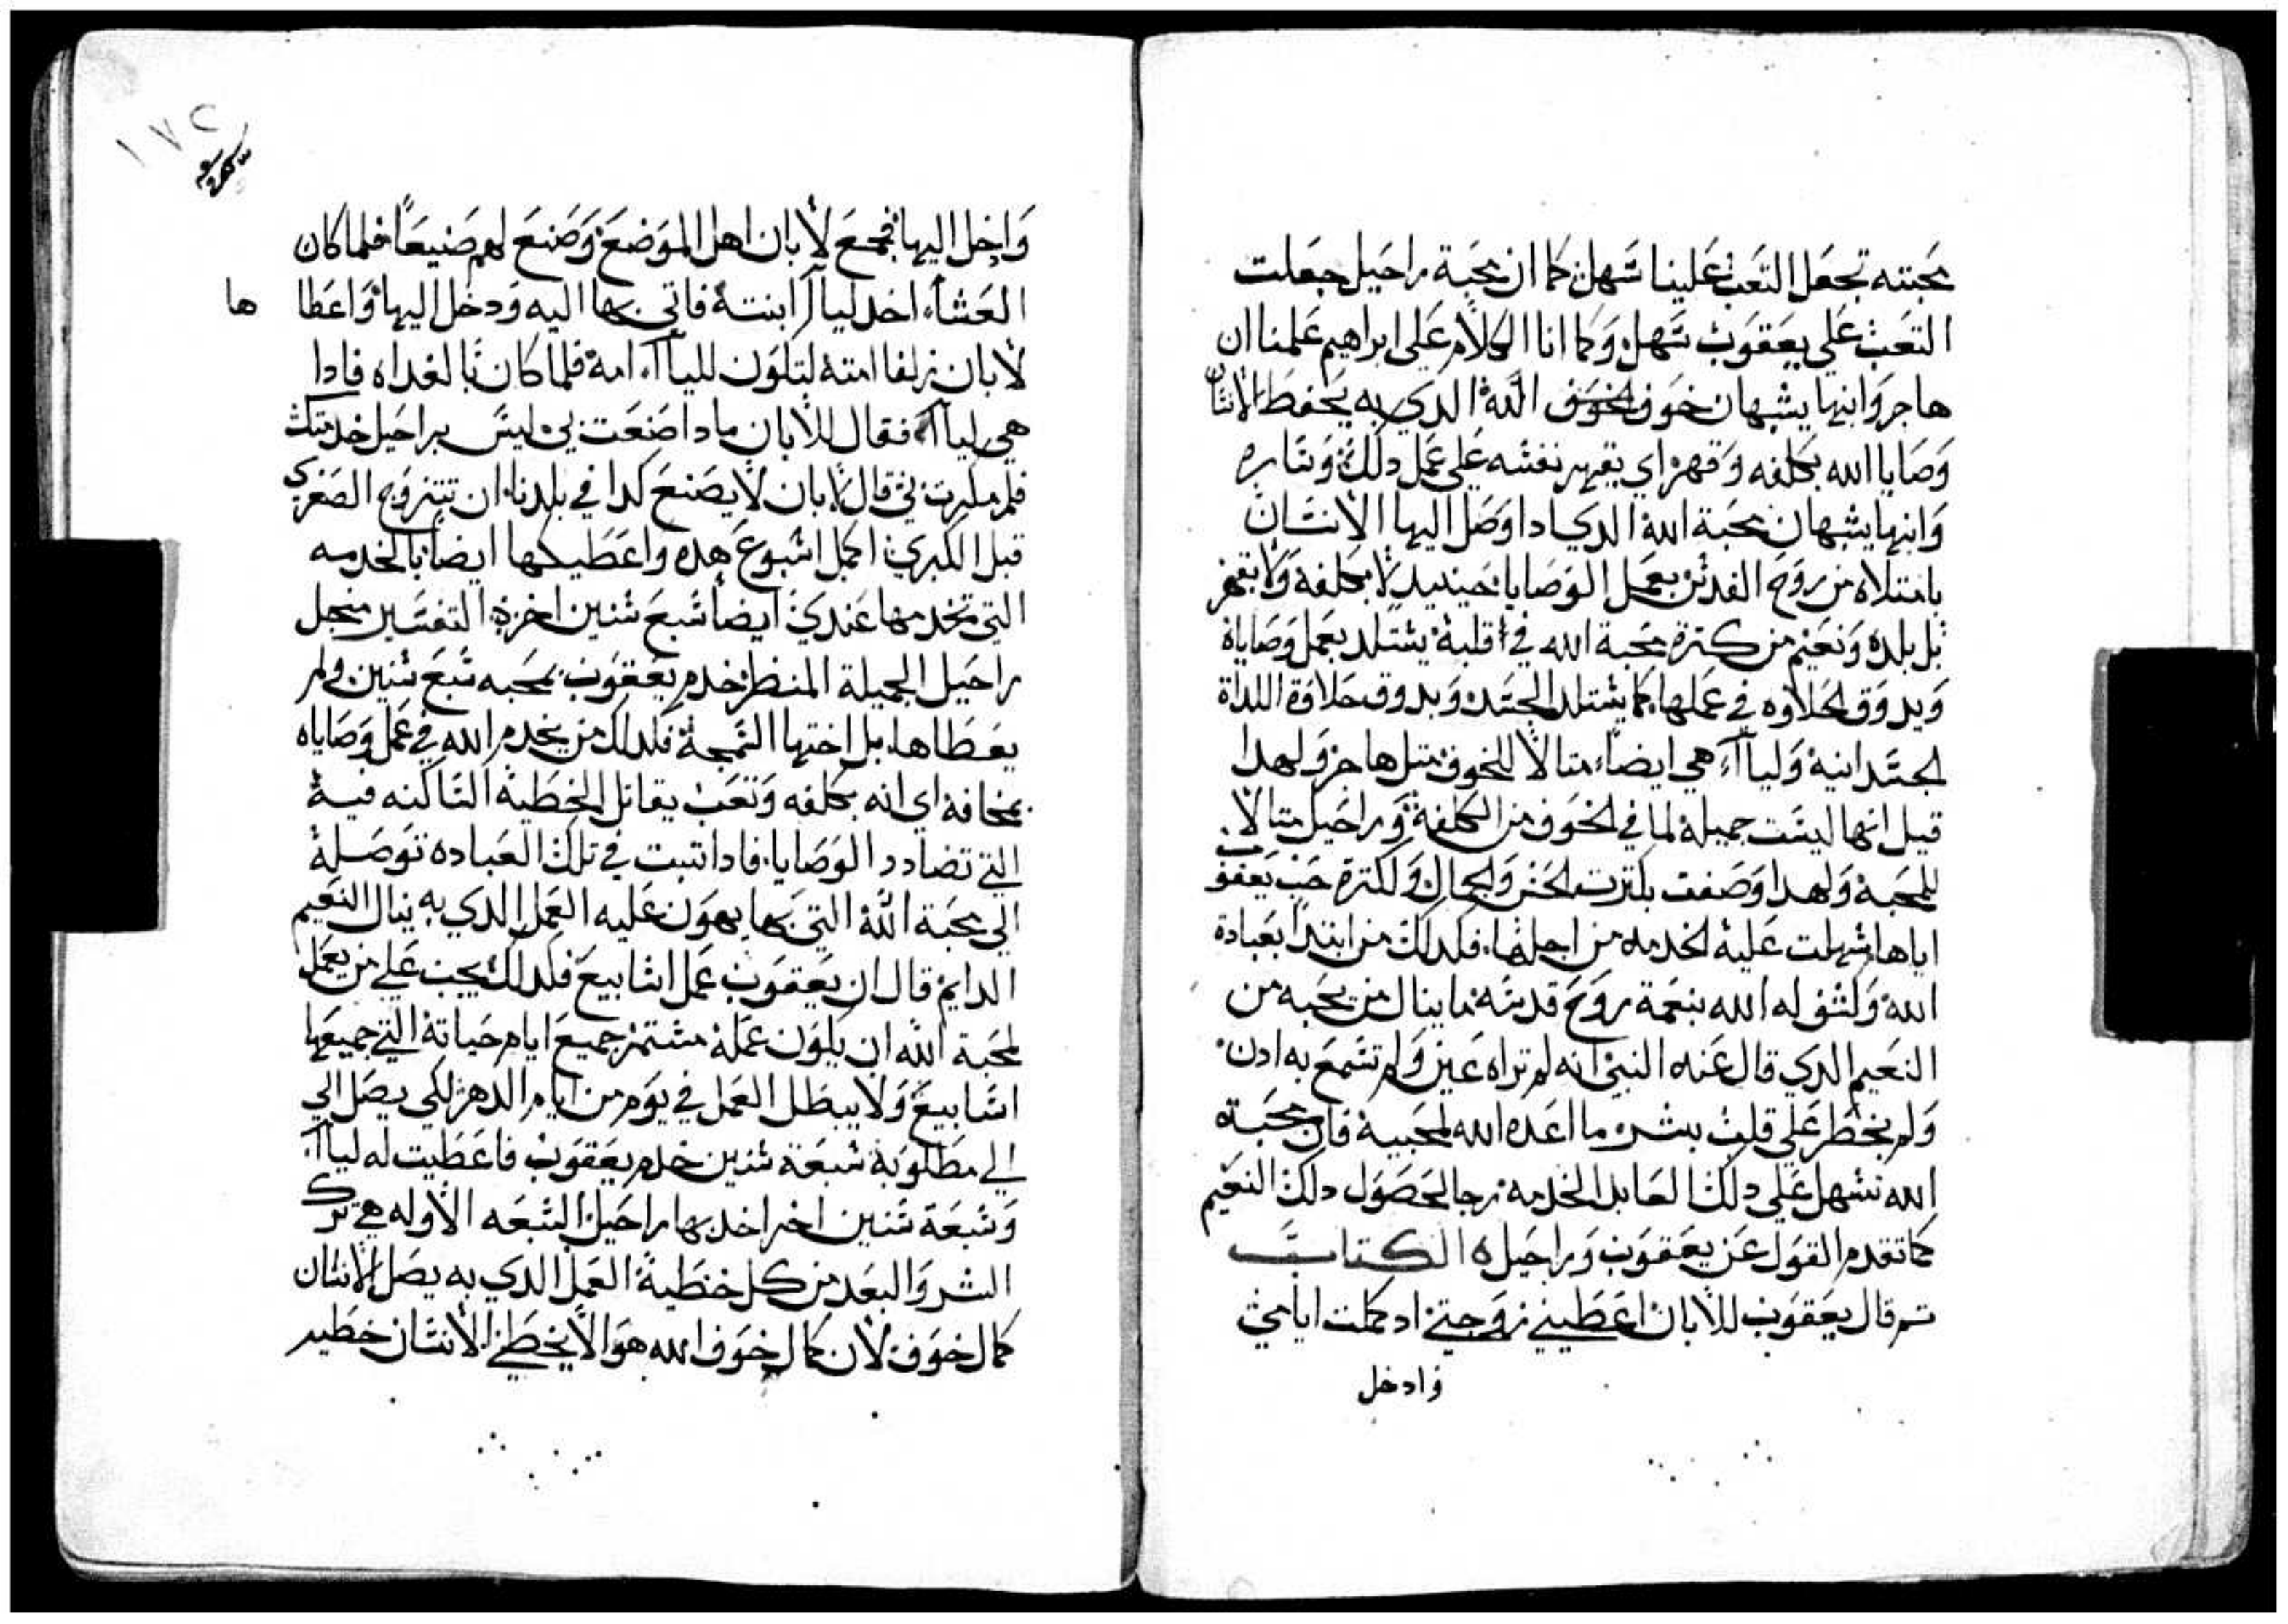 محبته تجعل التعب علينا سهل كما ان محبة راحيل جعلت
التعب علي يعقوب سهل وكما انا الكلام علي ابراهيم علمنا ان
هاجر وابنها يشبهان خوف الله الدي به يحفظ الانسان
وصايا الله بكلفه وقهر اي يقهر نفسه علي عمل دلك وساره
وابنها يشبهان محبة الله الدي ادا وصل اليها الانسان
بامتلاه من روح القدس بعمل الوصايا حينيد لا بكلفه ولا بقهر
بل بلده ونعيم من كترة محبة الله في قلبه يستلد بعمل وصاياه
ويدوق الحلاوه في عملها كما يستلد الجسد ويدوق حلاوة اللداة
الجسدانيه ولياآ هي ايضاً متالاً للخوف متل هاجر ولهدا
قيل انها ليست جميله لما في الخوف من الكلفة وراحيل متالاً
للمحبة ولهدا وصفت بكترت الحسن والجمال ولكترة حب يعقوب
اياها سهلت عليه الخدمه من اجلها فكدلك من ابتدا بعبادة
الله ولشوقه له الله بنعمة روح قدسه ما ينال من يحبه من
النعيم الدي قال عنه النبي انه لم تراه عين ولم تسمع به ادن
ولم يخطر علي قلب بشر ما اعده الله لمحبيه فان محبة
الله تسهل علي دلك العابد الخدمه رجا لحصول دلك النعيم
كما تقدم القول عن يعقوب وراحيل ٥ الكتاب
تم قال يعقوب للابان اعطيني زوجتي اد كملت ايامي
وادخل
١٧٢
وادخل اليها فجمع لابان اهل الموضع وصنع لهم صنيعاً فلما كان
العشاء اخد لياآ ابنته فاتي بها اليه ودخل اليها واعطا ها
لابان زلفا امته لتكون للياآ امة فلما كان بالغداه فادا
هي لياآ فقال للابان مادا صنعت بي ليس براحيل خدمتك
فلم مكرت بي قال لابان لا يصنع كدا في بلدنا ان تتزوج الصغري
قبل الكبري اكمل اسبوع هده واعطيكها ايضاً بالخدمه
التي تخدمها عندي ايضاً سبع سنين اخره التفسير منجل
راحيل الجميلة المنظر خدم يعقوب بمحبه سبع سنين ولم
يعطاها بل اختها السمجة فكدلك من يخدم الله في عمل وصاياه
بمخافة اي انه بكلفه وتعب يقاتل الخطية الساكنه فيه
التي تضادد الوصايا فادا تبت في تلك العباده توصله
الي محبة الله التي بها يهون عليه العمل الدي به ينال النعيم
الدايم قال ان يعقوب عمل اسابيع فكدلك يجب علي من يعمل
لمحبة الله ان يكون عمله مستمر جميع ايام حياته التي جميعها
اسابيع ولا يبطل العمل في يوم من ايام الدهر لكي يصل الي
الي مطلوبه سبعة سنين خدم يعقوب فاعطيت له لياآ
وسبعة سنين اخر اخد بها راحيل السبعه الاوله هي ترك
الشر والبعد من كل خطية العمل الدي به يصل الانسان
كمال خوف لان كمال خوف الله هو الا يخطي الانسان خطيه